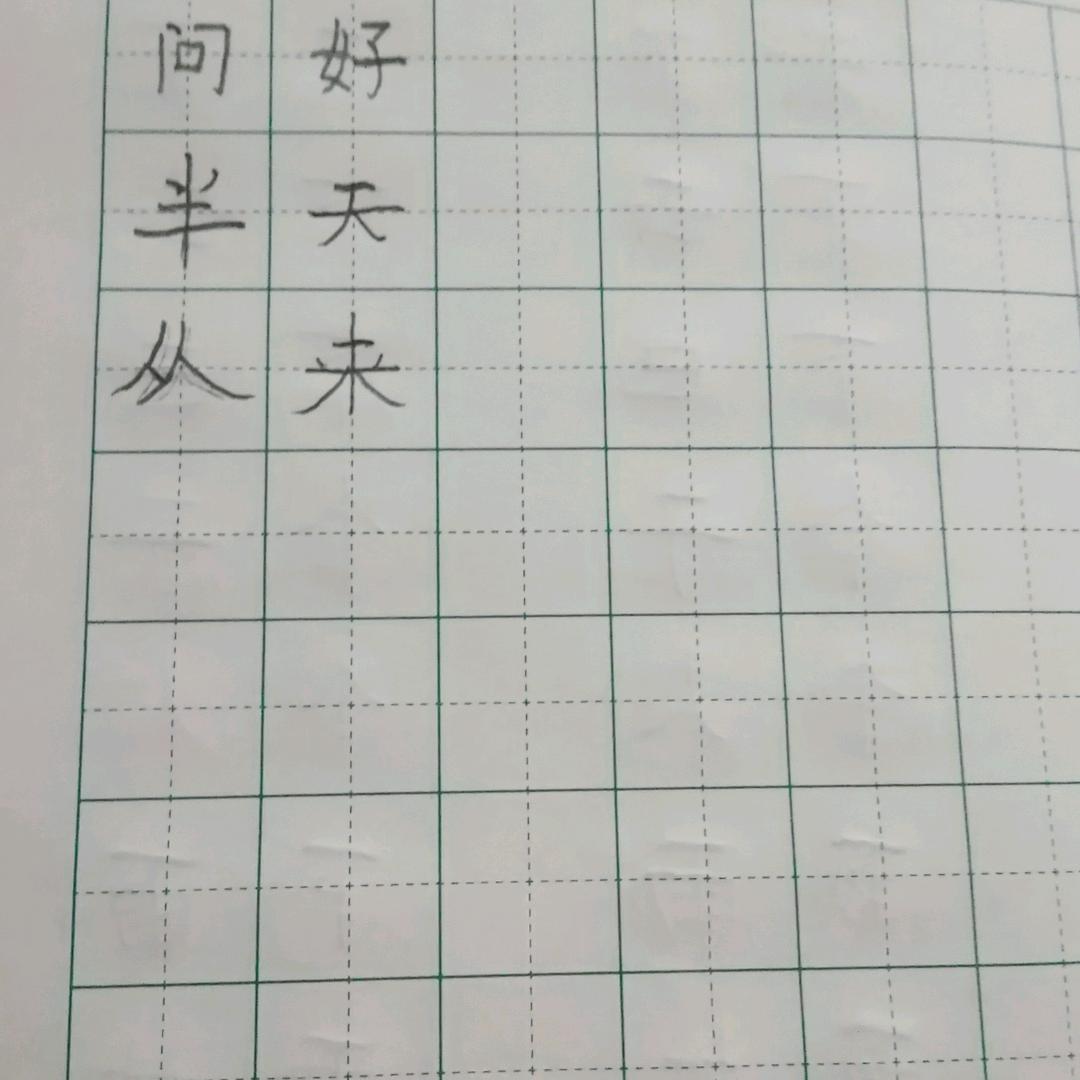 问好
半天
从来